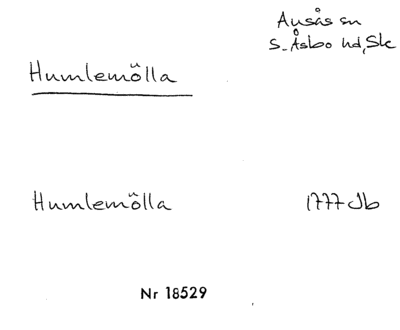 Ausås sn
S. Åsbo hd, Sk
Humlemölla
Humlemölla 1777 Jb
Nr 18529